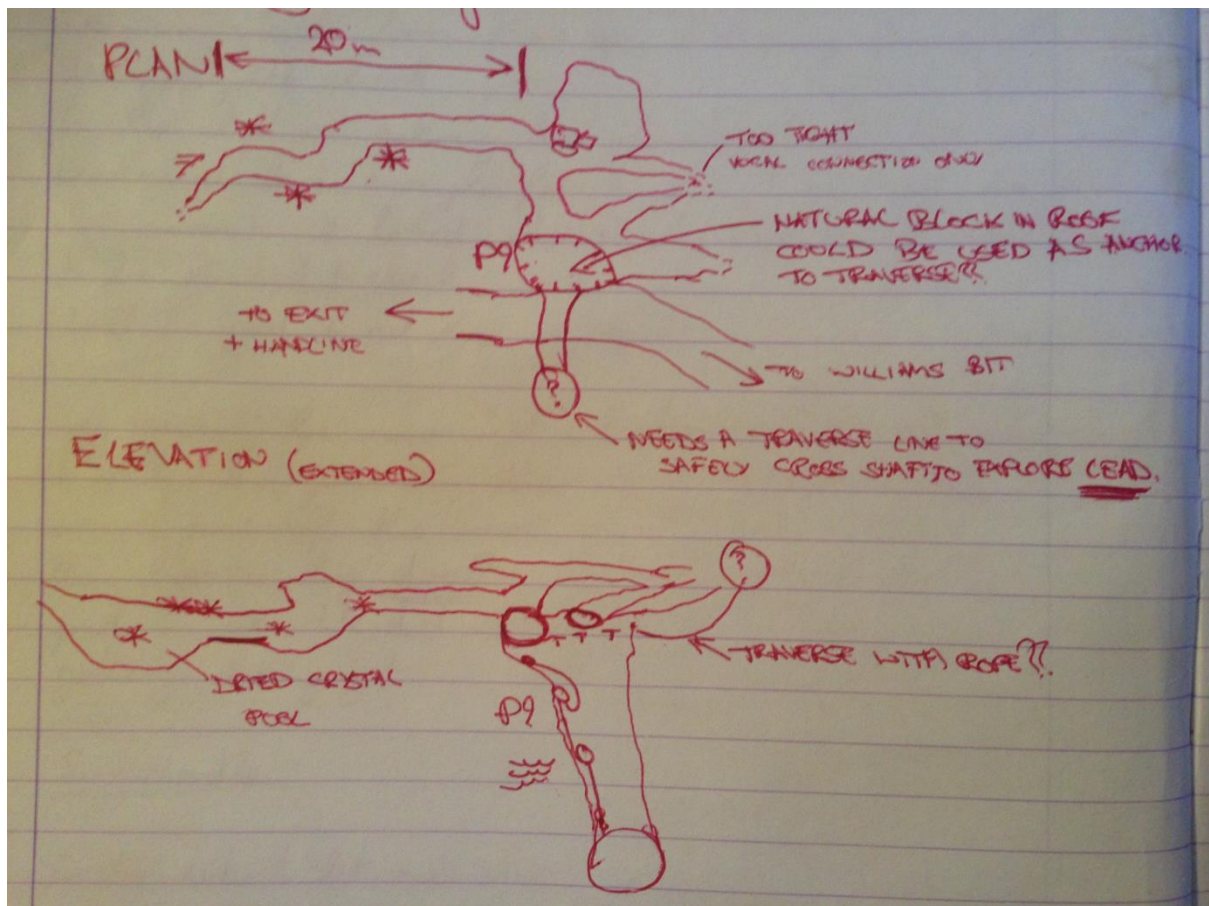 PLAN
20m
TOO TIGHT
VOCAL CONNECTION ONLY
NATURAL BLOCK IN ROOF
COULD BE USED AS ANCHOR
TO TRAVERSE??
P9
TO EXIT
+ HANDLINE
?
TO WILLIAMS BIT
NEEDS A TRAVERSE LINE TO
SAFELY CROSS SHAFT TO EXPLORE LEAD.
ELEVATION (EXTENDED)
?
TRAVERSE WITH ROPE??
DRIED CRYSTAL
POOL
P9